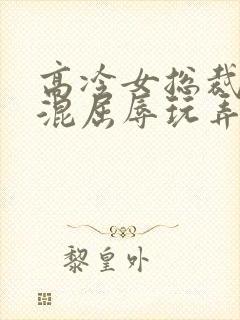 高冷女总裁
混屈辱玩弄
黎皇外